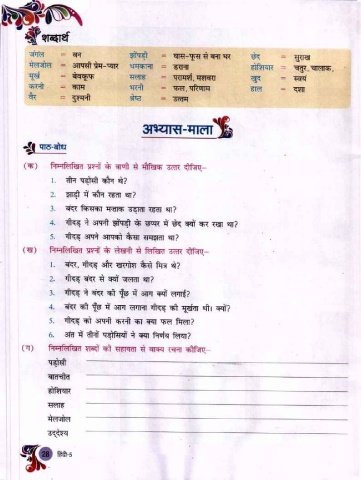 शब्दार्थ
जंगल = वन झोंपड़ी = घास-फूस से बना घर छेद = सुराख
मेलजोल = आपसी प्रेम-प्यार धमकाना = डराना होशियार = चतुर, चालाक,
मूर्ख = बेवकूफ सलाह = परामर्श, मशवरा खुद = स्वयं
करनी = काम भरनी = फल, परिणाम हाल = दशा
वैर = दुश्मनी श्रेष्ठ = उत्तम
अभ्यास-माला
पाठ-बोध
(क) निम्नलिखित प्रश्नों के वाणी से मौखिक उत्तर दीजिए–
1. तीन पड़ोसी कौन थे?
2. झाड़ी में कौन रहता था?
3. बंदर किसका मज़ाक उड़ाता रहता था?
4. गीदड़ ने अपनी झोंपड़ी के छप्पर में छेद क्यों कर रखा था?
5. गीदड़ अपने आपको कैसा समझता था?
(ख) निम्नलिखित प्रश्नों के लेखनी से लिखित उत्तर दीजिए–
1. बंदर, गीदड़ और खरगोश कैसे मित्र थे?
2. गीदड़ बंदर से क्यों जलता था?
3. गीदड़ ने बंदर की पूँछ में आग क्यों लगाई?
4. बंदर की पूँछ में आग लगाना गीदड़ की मूर्खता थी। क्यों?
5. गीदड़ को अपनी करनी का क्या फल मिला?
6. अंत में तीनों पड़ोसियों ने क्या निर्णय लिया?
(ग) निम्नलिखित शब्दों की सहायता से वाक्य रचना कीजिए–
पड़ोसी
बातचीत
होशियार
सलाह
मेलजोल
उद्देश्य
28 हिंदी-5